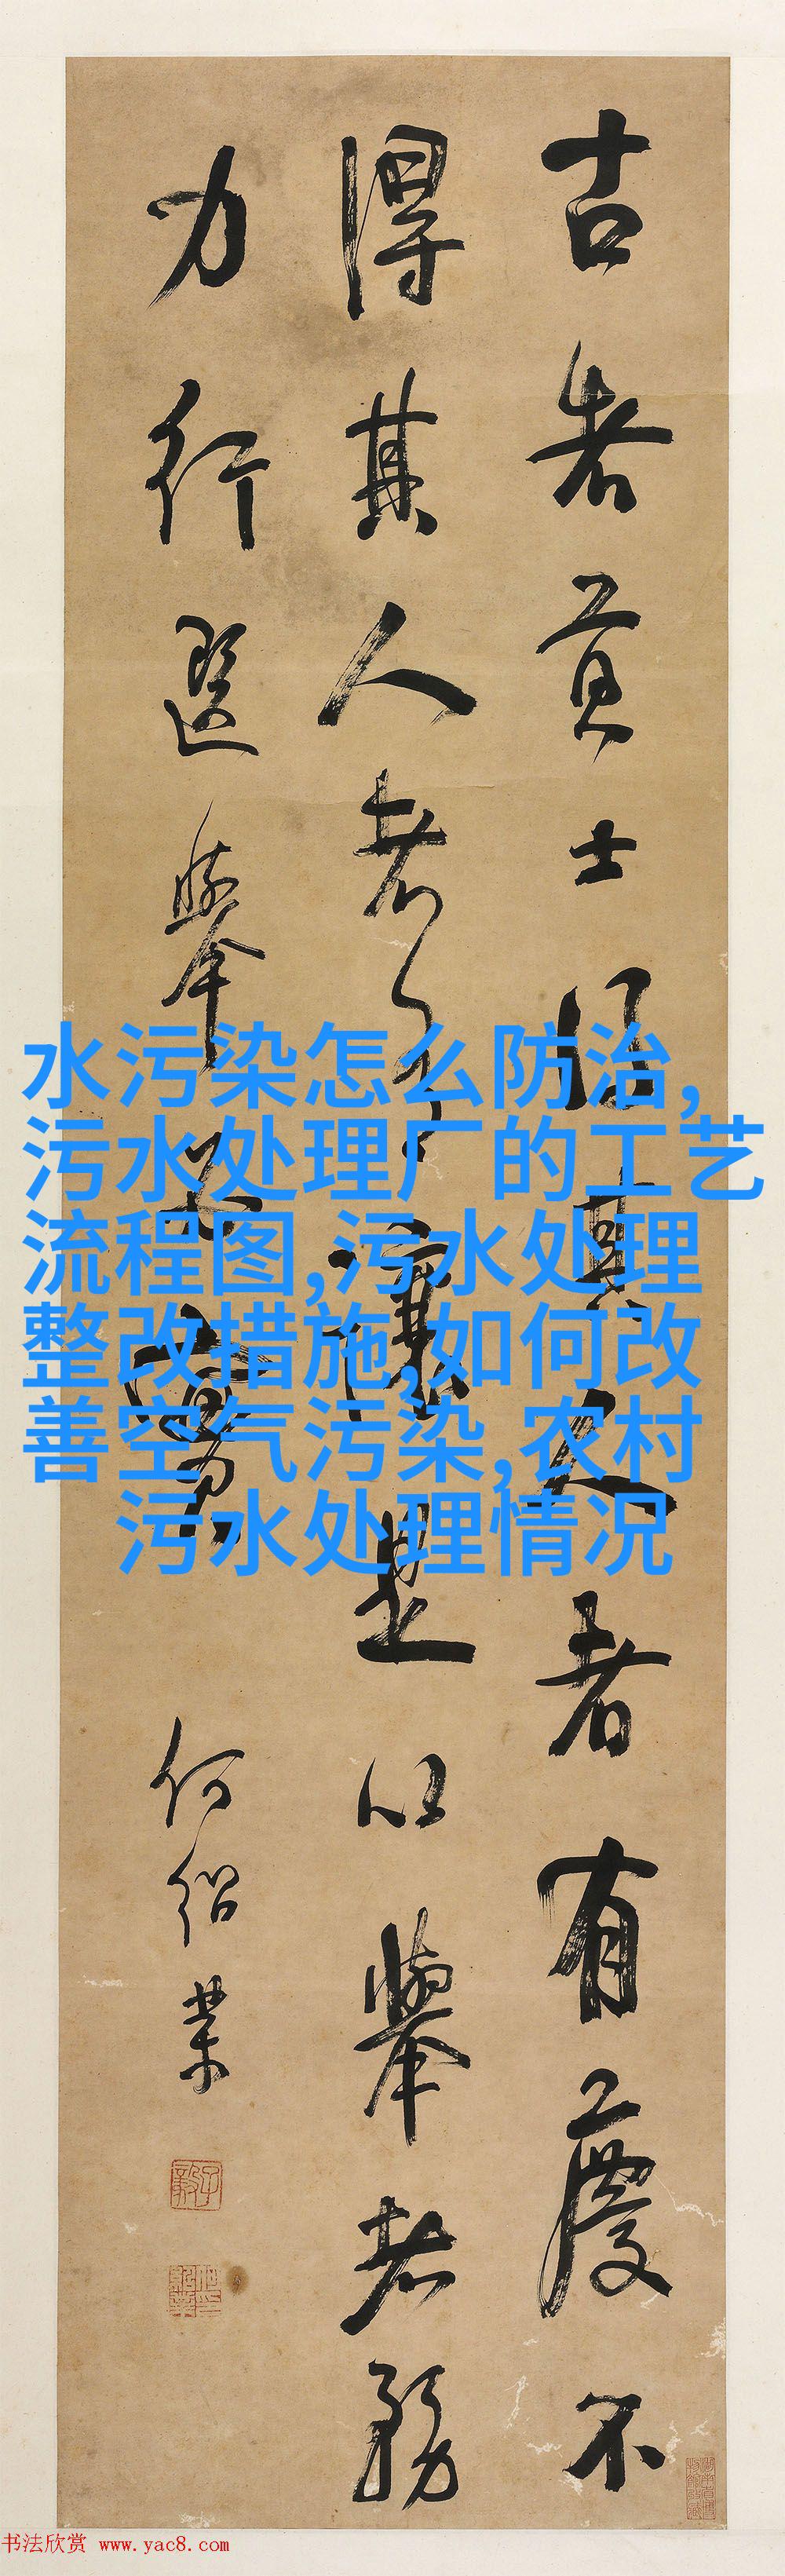 古者貢士得其人者有慶不
得其人者有讓是以舉者務
力行選舉必實
何紹業
水污染怎么防治,
污水处理厂的工艺
流程图,污水处理
整改措施,如何改
善空气污染,农村
污水处理情况
书法欣赏 www.yac8.com